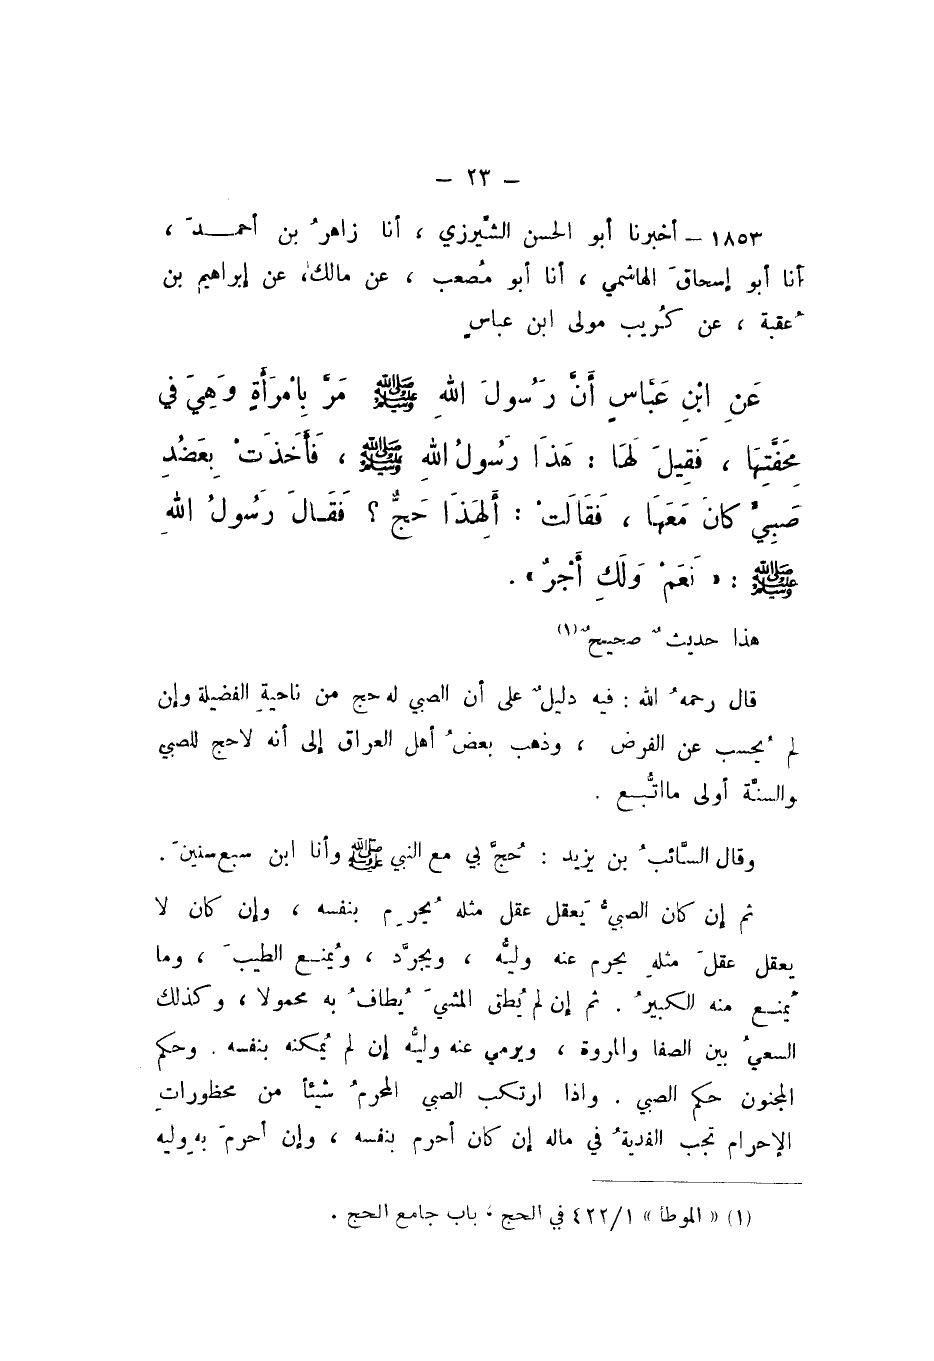 - ٢٣ -
١٨٥٣ - أخبرنا أبو الحسن الشّيرزي ، أنا زاهرُ بن أحمـــدَ ،
أنا أبو إسحاقَ الهاشمي ، أنا أبو مُصعب ، عن مالك، عن إبراهيم بن
عُقبة ، عن كُريب مولى ابن عباسٍ
عَنِ ابْنِ عَبَّاسٍ أَنَّ رَسُولَ اللهِ ﷺ مَرَّ بِامْرَأَةٍ وَهِيَ في
مِحَفَّتِهَا ، فَقِيلَ لَهَا : هَذَا رَسُولُ اللهِ ﷺ ، فَأَخَذَتْ بِعَضُدِ
صَبِيٍّ كانَ مَعَهَا ، فَقَالَتْ : أَلِهَذَا حَجٌّ ؟ فَقَـالَ رَسُولُ اللهِ
ﷺ : « نَعَمْ وَلَكِ أَجْرٌ » .
هذا حديثٌ صحيحٌ (١)
قال رحمهُ الله : فيه دليلٌ على أن الصبي له حج من ناحيةِ الفضيلة وإن
لم يُحسب عن الفرض ، وذهب بعضُ أهل العراق إلى أنه لاحج للصبي
والسنّة أولى مااتُّبــع .
وقال السَّائبُ بن يزيد : حُجَّ بي مع النبي ﷺ وأنا ابن سبع سنينَ .
ثم إن كان الصبيُّ يَعقل عقل مثله يُحرِم بنفسه ، وإن كان لا
يعقل عقلَ مثلهِ يحرم عنه وليُّه ، ويجرَّد ، ويُمنــع الطيبَ ، وما
يُمنــع منه الكبيرُ . ثم إن لم يُطق المشيَ يُطافُ به محمولا ، وكذلك
السعيُ بين الصفا والمروة ، ويرمي عنه وليُّه إن لم يُمكنه بنفسه . وحكم
المجنون حكم الصبي . واذا ارتكب الصبي المحرمُ شيئاً من محظوراتِ
الإحرام تجب الفديةُ في ماله إن كان أحرم بنفسه ، وإن أحرمَ به وليه
(١) « الموطأ » ٤٢٢/١ في الحج ، باب جامع الحج .